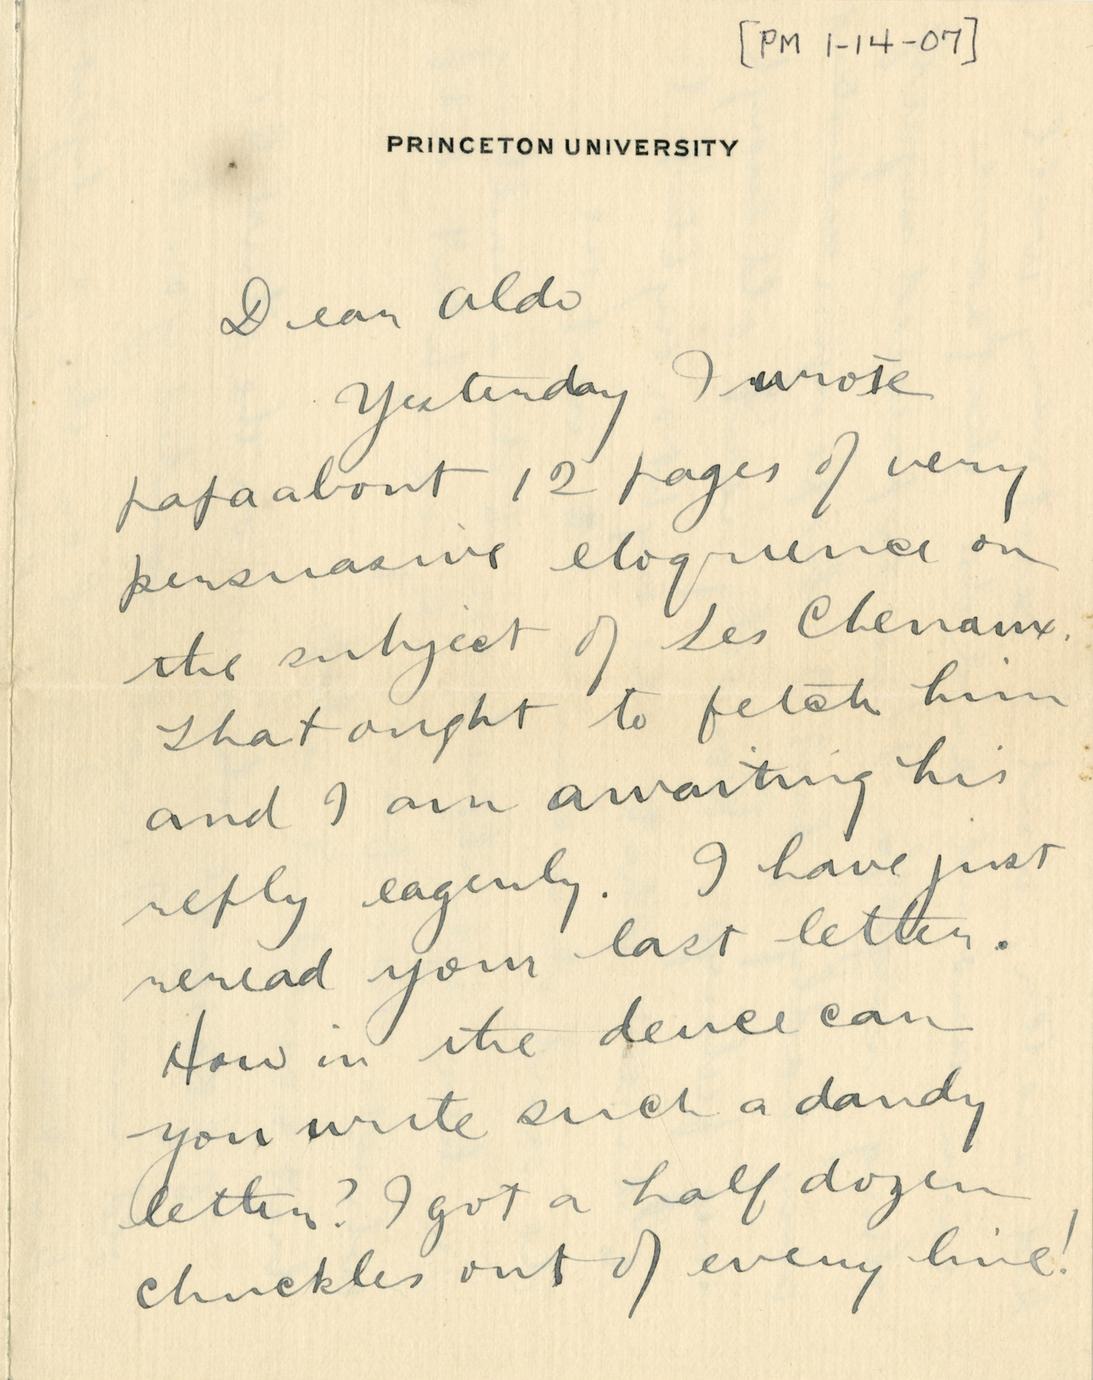 [PM 1-14-07]
PRINCETON UNIVERSITY
Dear Aldo
Yesterday I wrote
papa about 12 pages of very
persuasive eloquence on
the subject of Les Chenaux.
That ought to fetch him
and I am awaiting his
reply eagerly. I have just
reread your last letter.
How in the deuce can
you write such a dandy
letter? I got a half dozen
chuckles out of every line!